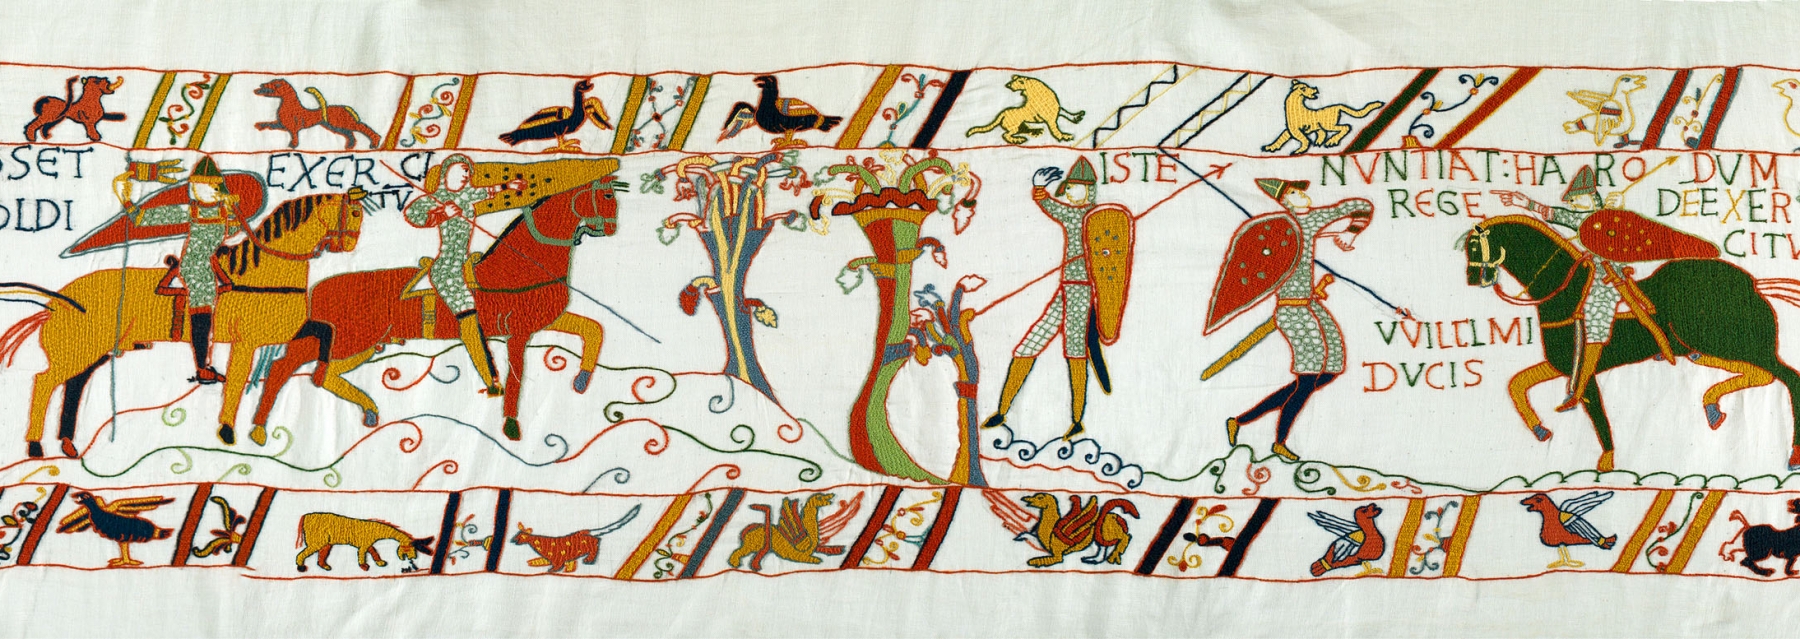 SSET
OLDI
EXERCI
TV
ISTE NVNTIAT:HARO DVM
REGE DEEXER
CITV
VVILELMI
DVCIS